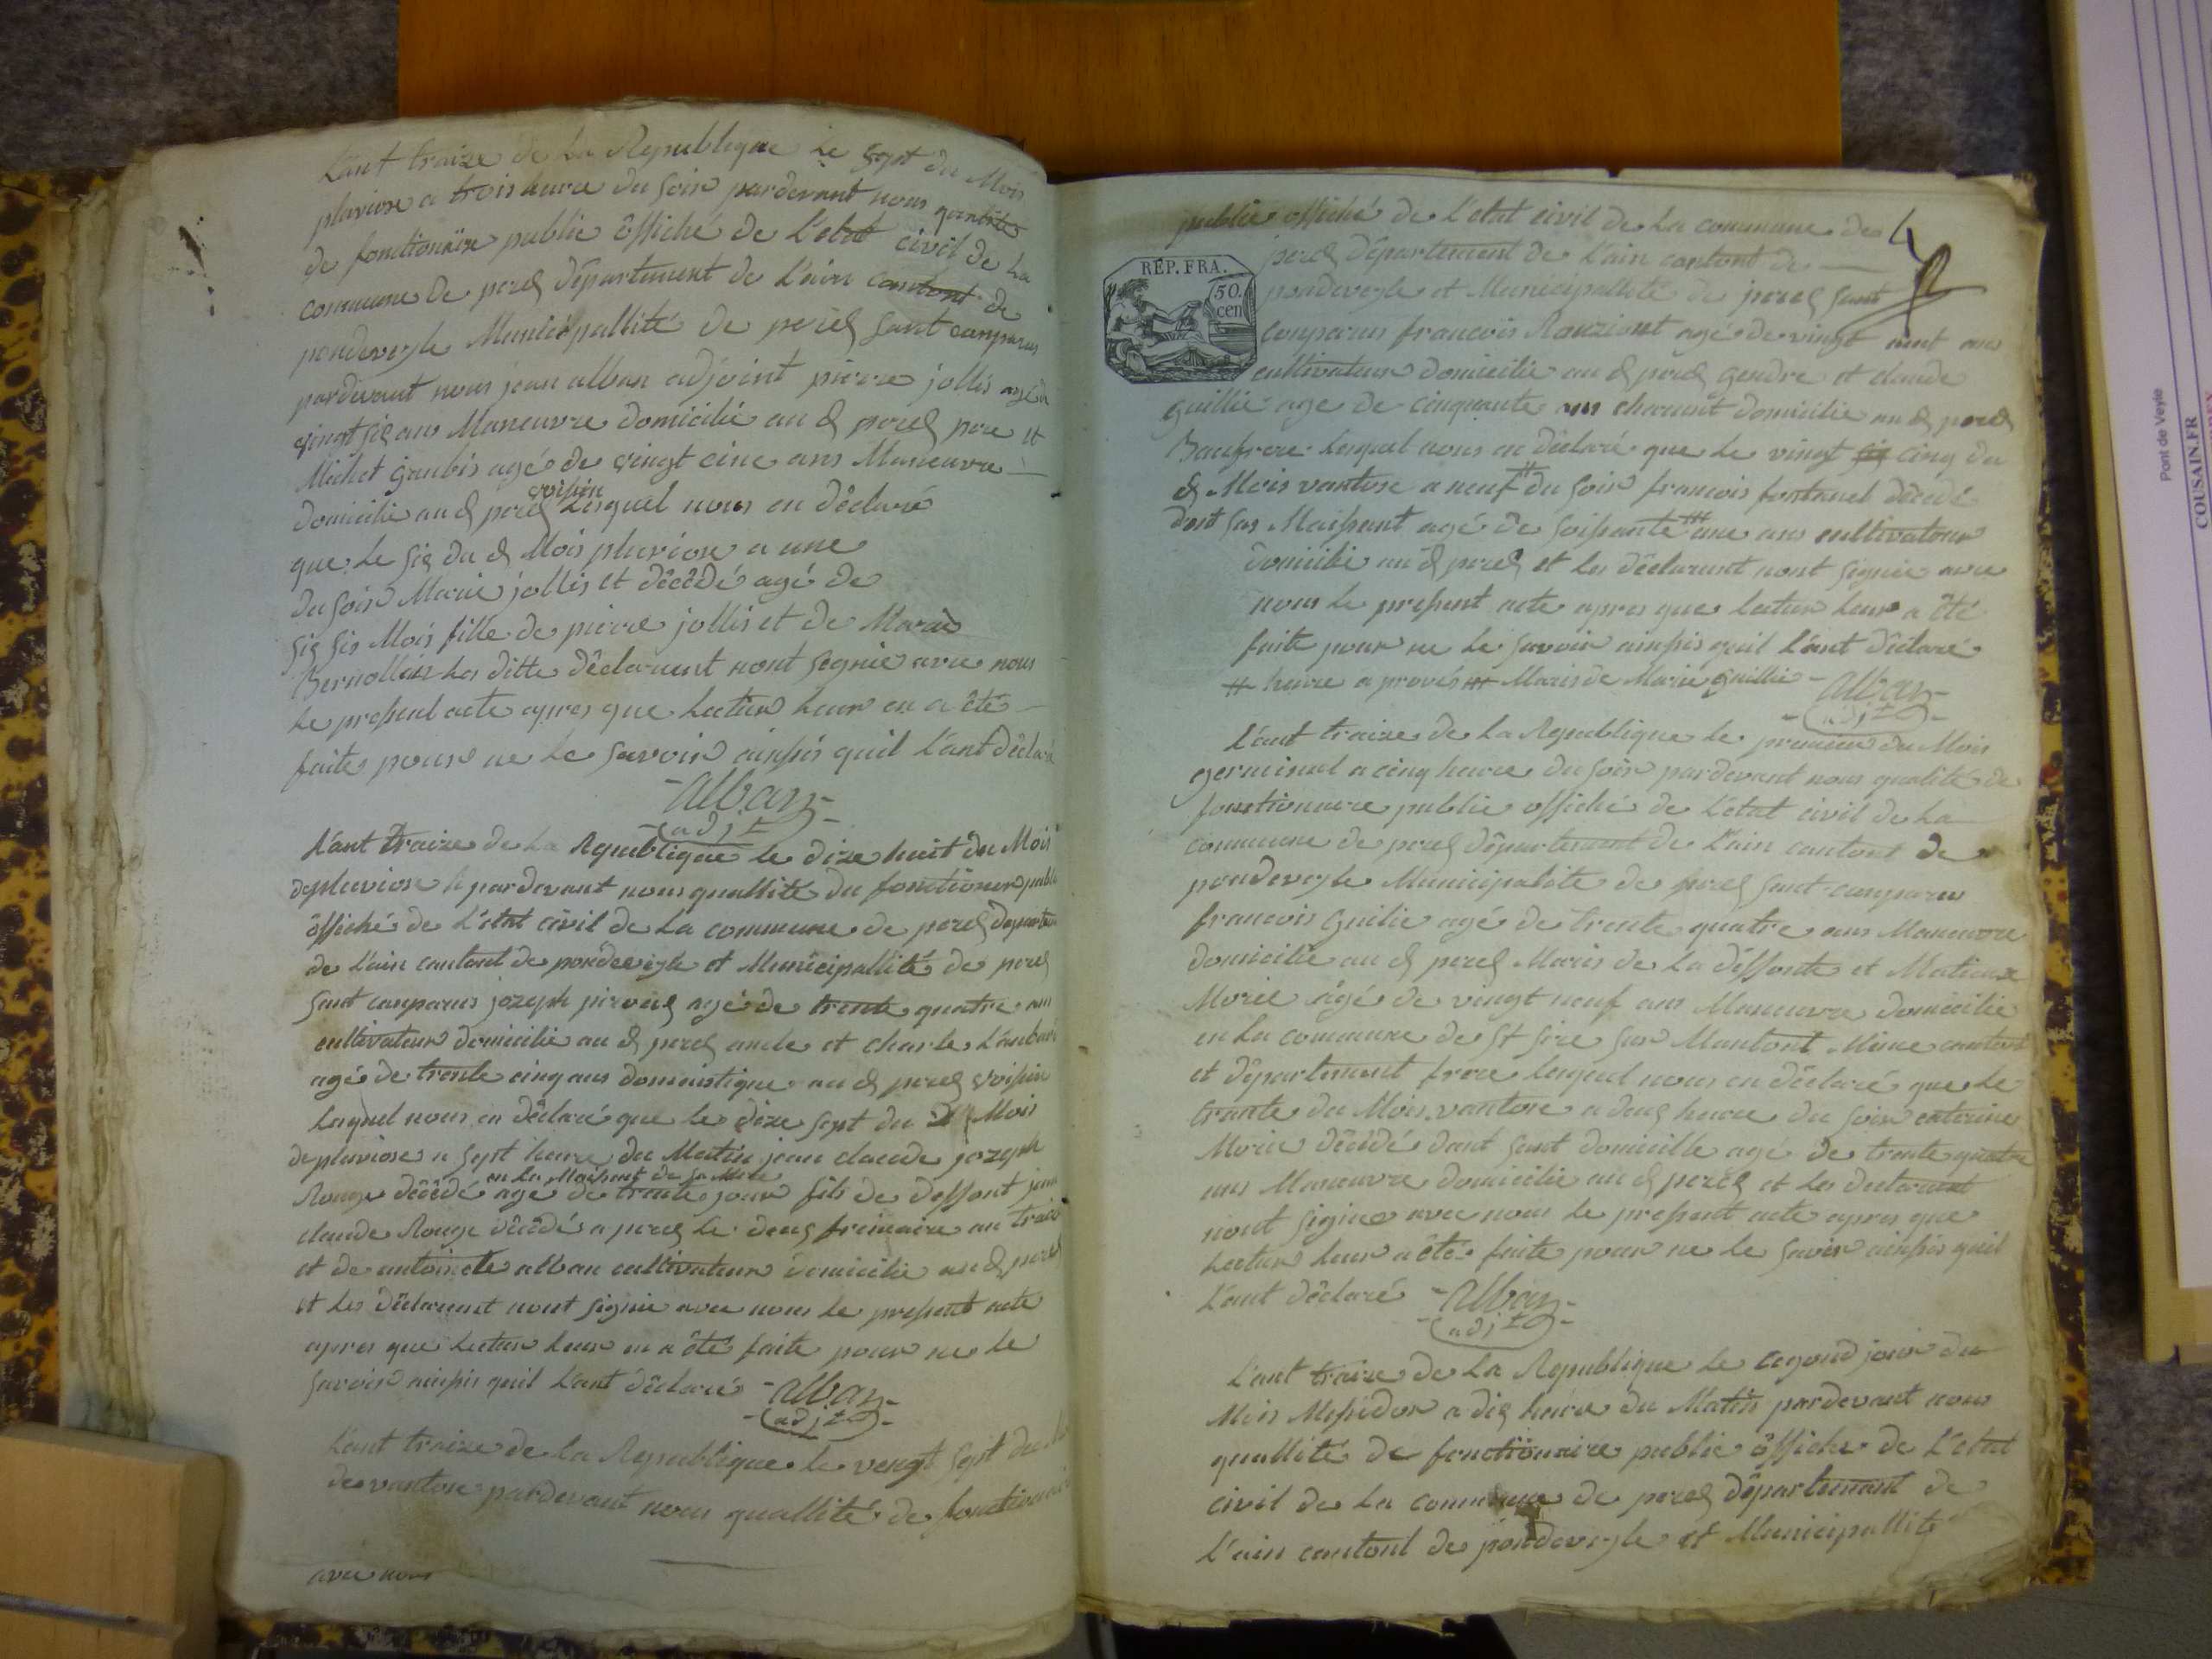 Lant traize de La Republique Le sept du Mois
pluviose a trois heure du soir pardevant nous quallité
de fonctionaire public ôffiché de L'etat civil de La
commune de perex département de L'ain cantont de
pondeveyle Municipallité de perex sont comparus
pardevant nous jean alban adjoint pierre jollis agé de
vingt six ans Maneuvre domicilié au d perex pere et
Michel Gaubis agé de vingt cinc ans Maneuvre
voisin
domicilié au d perex Lesquel nous on déclaré
que Le six du d Mois pluviose a une
du soir Marie jollis et décédé agé de
six sis Mois fille de pierre jollis et de Marie
Bernollin Les ditte déclarent nont signié avec nous
Le present acte apres que Lecture Leur en a été
faite pour ne Le savoir ainsis quil L'ant déclaré
alban
adjt
Lant traize de La Republique le dize huit du Mois
de pluviose pardevant nous quallité du fonctioner public
ôffiché de L'etat civil de La commune de perex departement
de L'ain cantont de pondeveyle et Municipallité de perex
sont comparus jozeph perveux agé de trente quatre ans
cultivateur domicilié au d perex oncle et charle L'aubari
agé de trente cinq ans domestique au d perex voisin
Lequel nous on déclaré que le dize sept du d Mois
de pluviose a sept heure du Matin jean claude jozeph
en La Maisont de sa Mere
Rouge décédé agé de trente jour fils de deffont jean
claude Rouge décédé a perex le deux frimaire an traize
et de antoinete alban cultivateur domicilié au d perex
et Les déclarent nont signié avec nous Le present acte
apres que Lecture Leur en a été faite pour ne le
savoir ainsis quil L'ant déclaré alban
adjt
Lant traize de la Republique le vengt sept du
de vantose pardevant nous quallité de fonctionaire
avec nous
4
public offiché de L'etat civil de La commune de
RÉP. FRA.
50. cen
perex département de L'ain cantont de
pondeveyle et Municipallité de perex sont
comparus francois Rouziont agé de vingt ans
cultivateur domicilié au d perex gendre et claude
guillie age de cinquante ans charont domicilié au d perex
Baufrere Lequel nous on déclaré que le vingt cinq du
d Mois vantose a neuf # du soir francois fontanel décédé
dont sas Maisont agé de soissante une ans cultivateur
domicilié au d perex et les déclarent nont signie avec
nous le present acte apres que lecture leur a été
faite pour ne le savoir ainsis quil L'ant déclaré
# heure a provés Maris de Marie Guillie
alban
adjt
L'ant traize de La Republique le premier du Mois
germinal a cinq heure du soir pardevant nous qualité de
fonctionaire public offiché de L'etat civil de La
commune de perex département de L'ain cantont de
pondeveyle Municipalité de perex sont comparu
francois Guilie agé de trente quatre ans Maneuvre
domicilié au d perex Maris de La déffonte et Matieux
Morie agé de vingt neuf ans Maneuvre domicilié
en La commune de St sire sur Mantont Même cantont
et département frere Lequel nous on déclaré que Le
trante du Mois vantose a deux heure du soir caterine
Morie décédé dant sont domicille agé de trente quatre
ans Maneuvre domicilié au d perex et Les declarent
nont signie avec nous le present acte apres que
Lecture leur a été faite pour ne le savoir ainsis quil
L'ant déclaré alban
adjt
L'ant traize de La Republique Le cegond jour du
Mois Messidor a dix heure du Matin pardevant nous
quallité de fonctionaire public ôffiche de L'etat
civil de La commune de perex département de
L'ain cantont de pondeveyle et Municipallité
Pont de Veyle
COUSAIN.FR